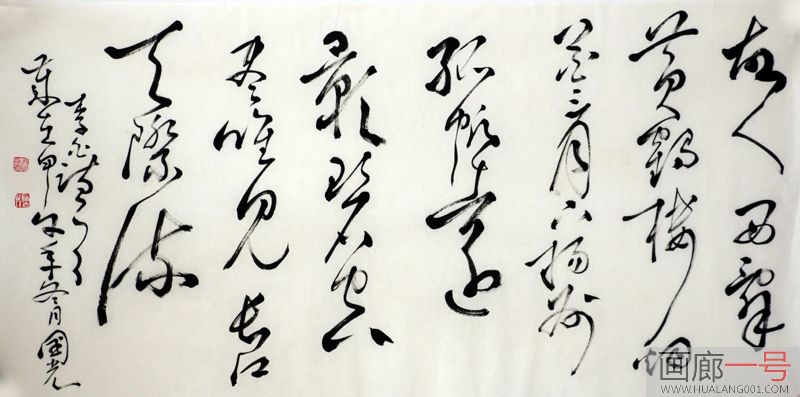 故人西辭
黄鶴樓烟
花三月下揚州
孤帆遠
影碧空
盡唯見長江
天際流
李白詩一首
歲在甲午年冬月國光
画廊一号
WWW.HUALANG001.COM